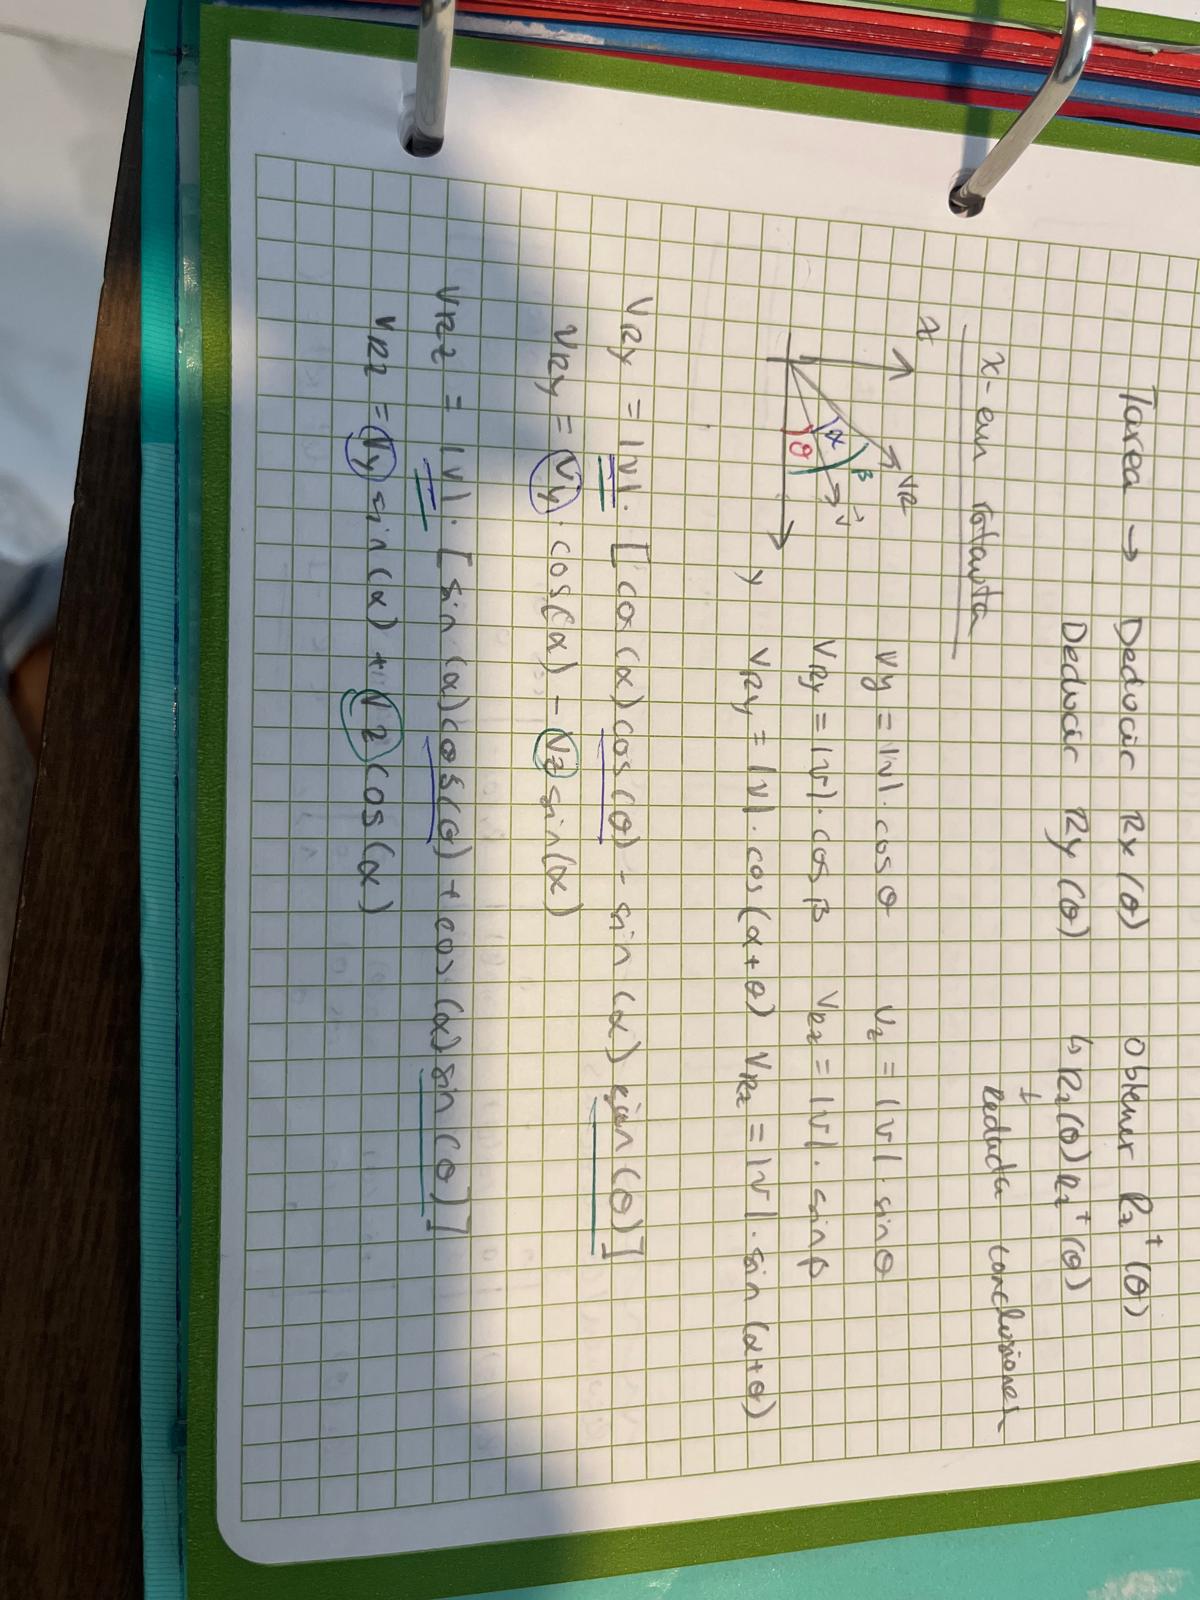 Tarea → Deducir Rx(θ) Obtener Rz⁺(θ)
Deducir Ry(θ) ↳ Rz(θ)Rz⁺(θ)
↓
Redacta conclusiones
x-em rotawta
z
VR
β
α
θ
v⃗
y
Vy = |v|·cos θ Vz = |v|·sin θ
VRy = |v|·cos β VRz = |v|·sin β
VRy = |v|·cos(α+θ) VRz = |v|·sin(α+θ)
VRy = |v|·[cos(α)cos(θ) - sin(α) sin(θ)]
VRy = Vy·cos(α) - Vz sin(α)
VRz = |v|·[sin(α)cos(θ) + cos(α) sin(θ)]
VRz = Vy sin(α) + Vz cos(α)